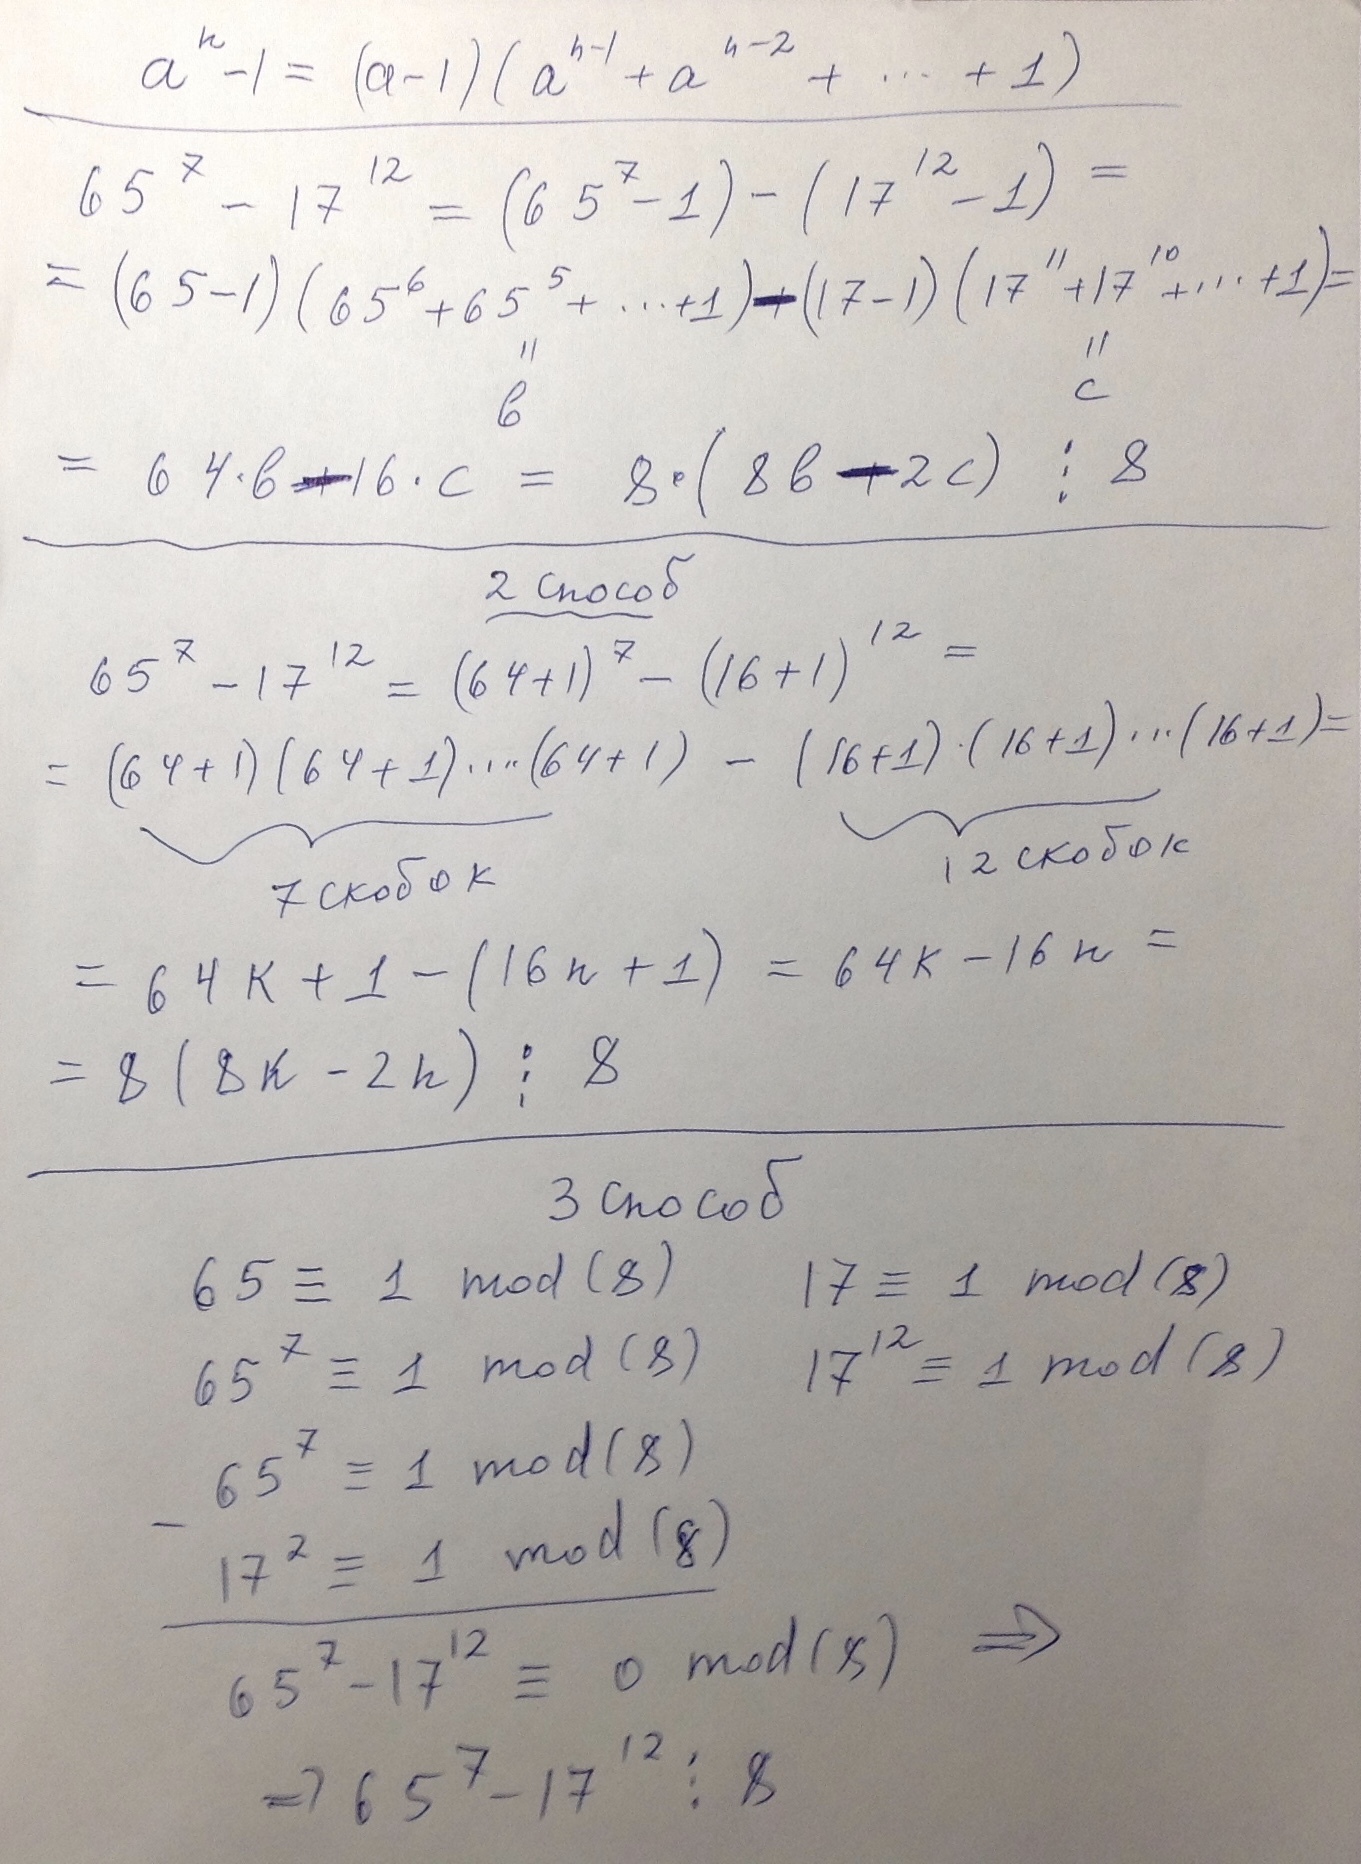 aⁿ-1 = (a-1)(aⁿ⁻¹ + aⁿ⁻² + ... + 1)
65⁷ - 17¹² = (65⁷-1) - (17¹²-1) =
= (65-1)(65⁶+65⁵+...+1)-(17-1)(17¹¹+17¹⁰+...+1)=
" "
в с
= 64·в-16·с = 8·(8в-2с) ⋮ 8
2 способ
65⁷ - 17¹² = (64+1)⁷ - (16+1)¹² =
= (64+1)(64+1)·...(64+1) - (16+1)·(16+1)...(16+1)=
7 скобок 12 скобок
= 64к + 1 - (16n + 1) = 64к - 16n =
= 8(8к - 2n) ⋮ 8
3 способ
65 ≡ 1 mod(8) 17 ≡ 1 mod(8)
65⁷ ≡ 1 mod(8) 17¹² ≡ 1 mod(8)
65⁷ ≡ 1 mod(8)
-
17² ≡ 1 mod(8)
65⁷ - 17¹² ≡ 0 mod(8) ⇒
⇒ 65⁷ - 17¹² ⋮ 8